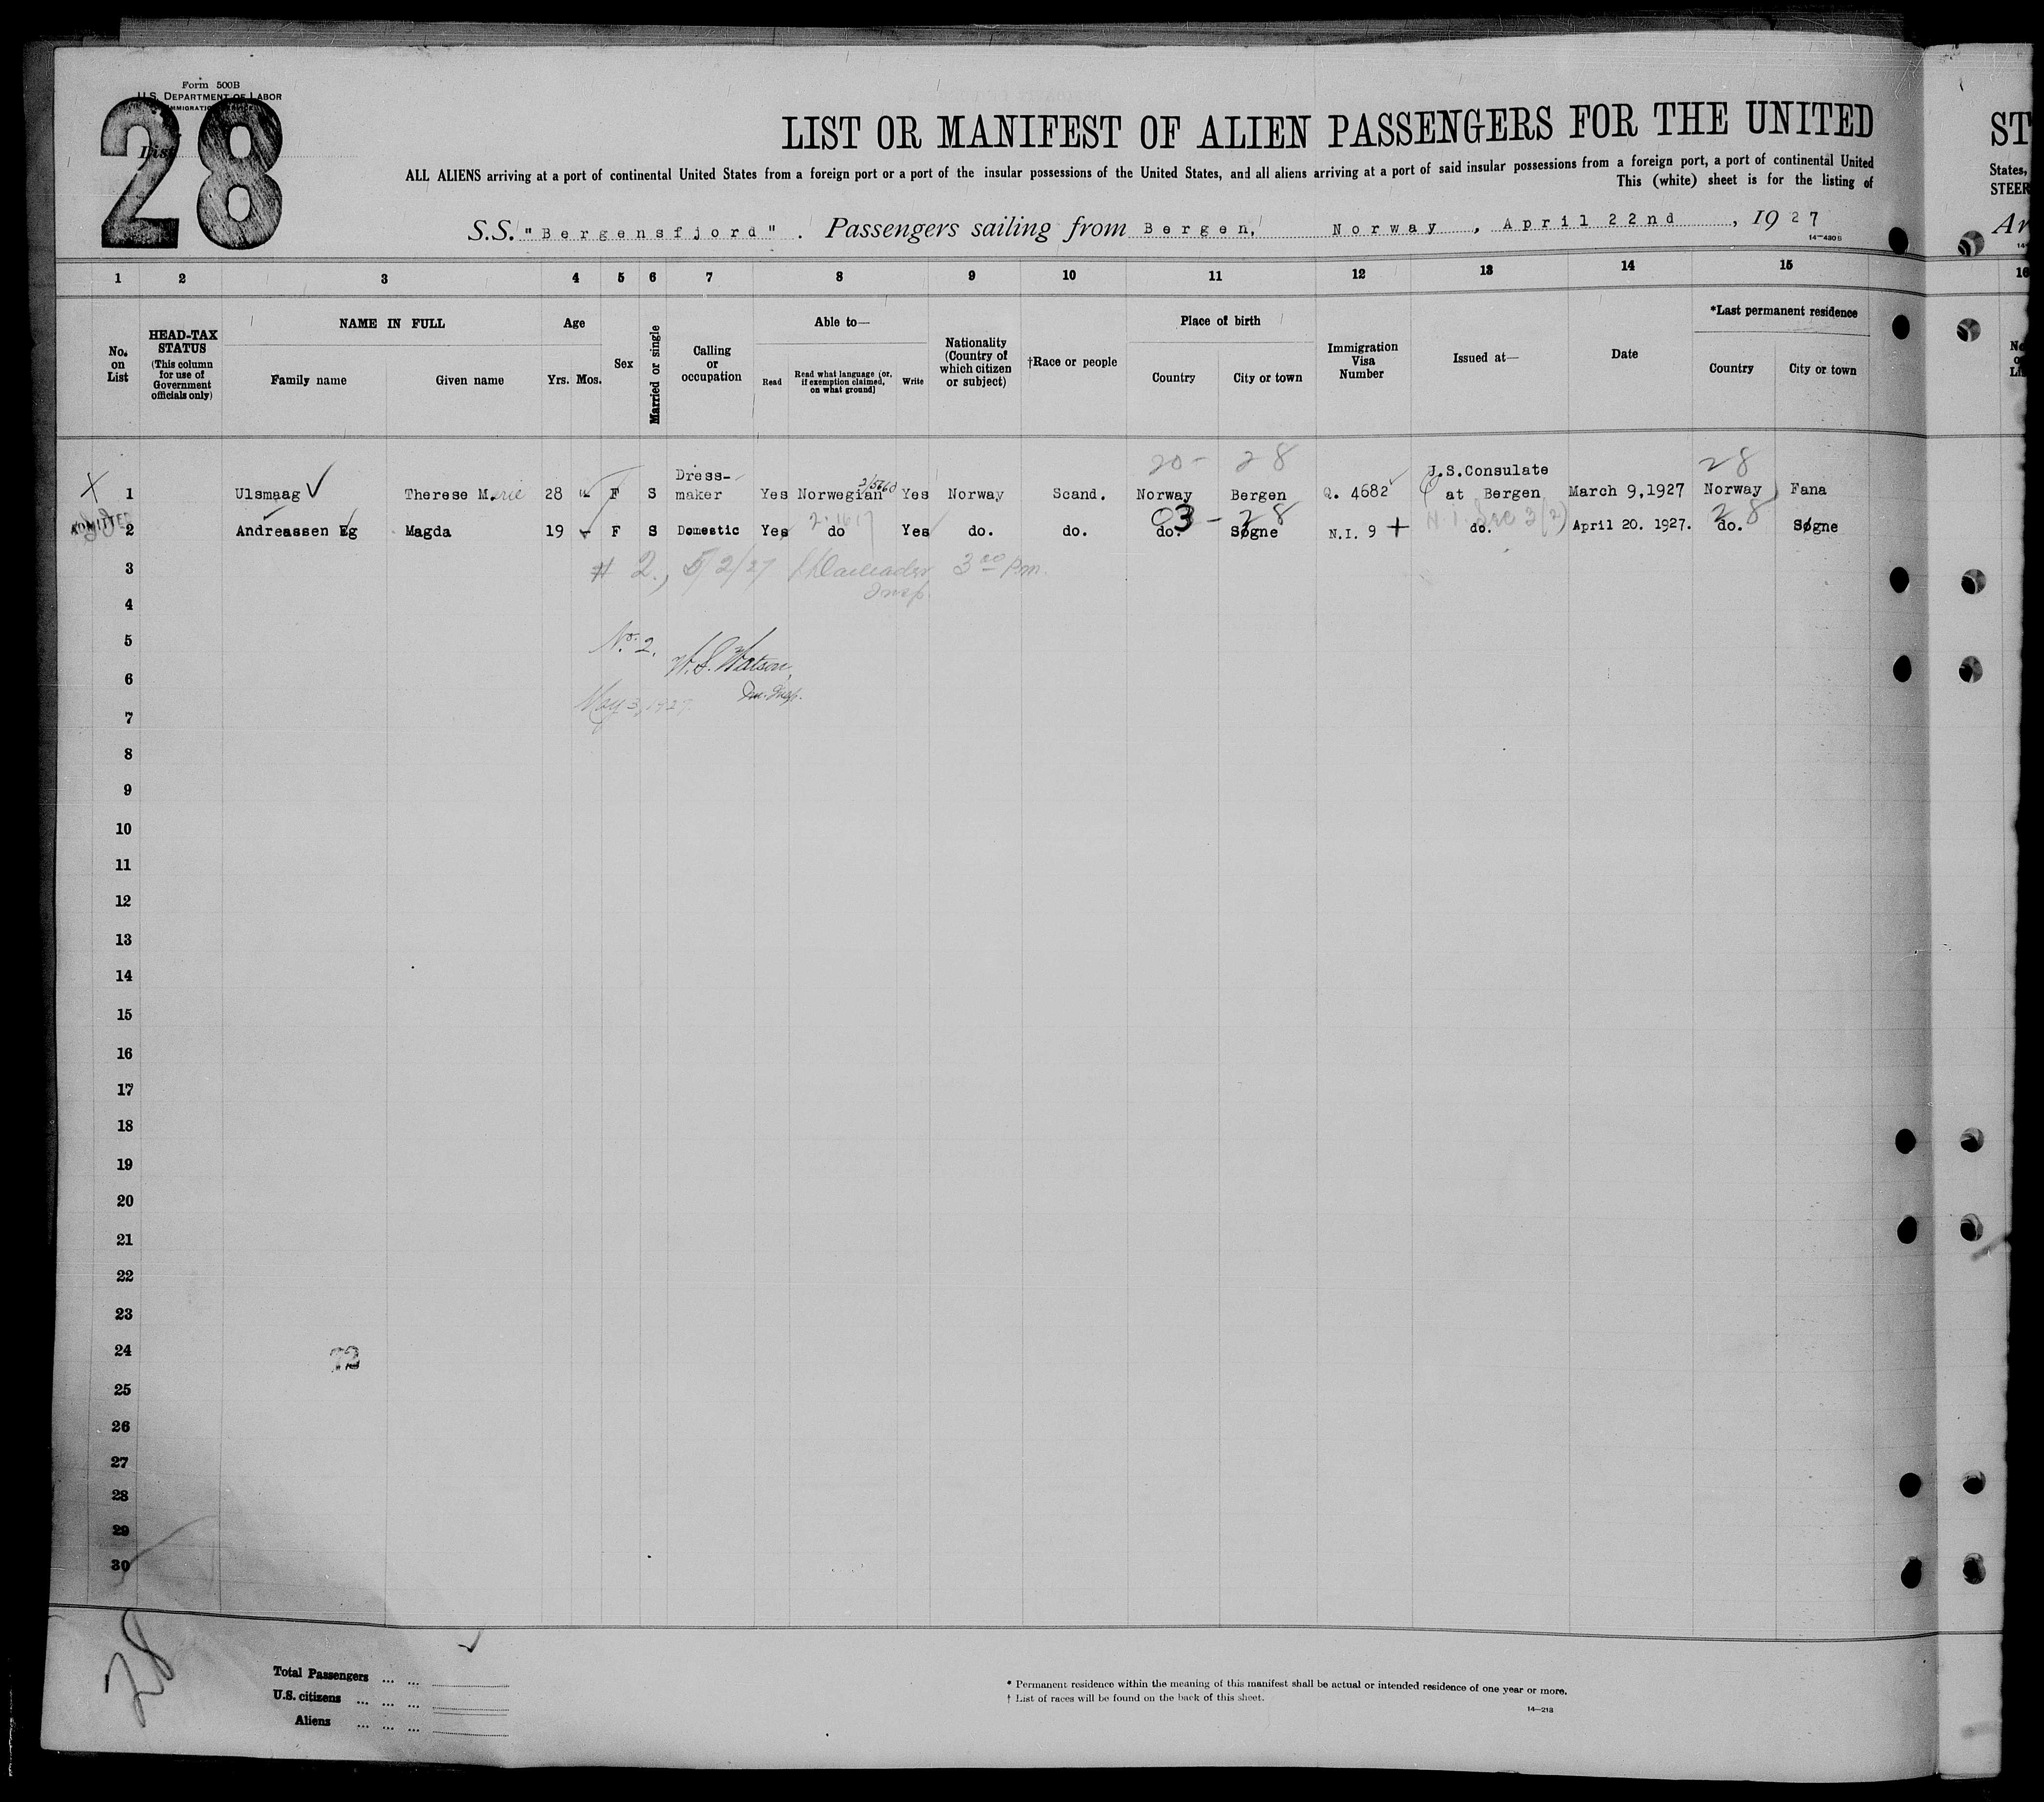 Form 500B
U.S. DEPARTMENT OF LABOR
IMMIGRATION SERVICE
List
28
LIST OR MANIFEST OF ALIEN PASSENGERS FOR THE UNITED
ALL ALIENS arriving at a port of continental United States from a foreign port or a port of the insular possessions of the United States, and all aliens arriving at a port of said insular possessions from a foreign port, a port of continental United
This (white) sheet is for the listing of
S.S. "Bergensfjord". Passengers sailing from Bergen, Norway, April 22nd, 1927
14-430B
ST
States,
STEER
Ar
1 2 3 4 5 6 7 8 9 10 11 12 13 14 15 16
No. on List
HEAD-TAX STATUS (This column for use of Government officials only)
NAME IN FULL
Family name Given name
Age
Yrs. Mos.
Sex
Married or single
Calling or occupation
Able to—
Read Read what language (or, if exemption claimed, on what ground) Write
Nationality (Country of which citizen or subject)
†Race or people
Place of birth
Country City or town
Immigration Visa Number
Issued at—
Date
*Last permanent residence
Country City or town
20- 28 28
X 1 Ulsmaag Therese Marie 28 F S Dress-maker Yes Norwegian Yes Norway Scand. Norway Bergen Q. 4682 U.S.Consulate at Bergen March 9,1927 Norway Fana
03-28 N.I. Sec 3(2) 28
ADMITTED 2 Andreassen Eg Magda 19 F S Domestic Yes do Yes do. do. do. Søgne N.I. 9 + do. April 20. 1927. do. Søgne
3 # 2., 5/2/27 3 00 Pm.
Insp.
4
5 No. 2.
6 W.S. Watson
Im. Insp.
7 May 3, 1927
8
9
10
11
12
13
14
15
16
17
18
19
20
21
22
23
24 72
25
26
27
28
29
30
28
Total Passengers ... ...
U.S. citizens ... ... ...
Aliens ... ... ...
* Permanent residence within the meaning of this manifest shall be actual or intended residence of one year or more.
† List of races will be found on the back of this sheet.
14-213